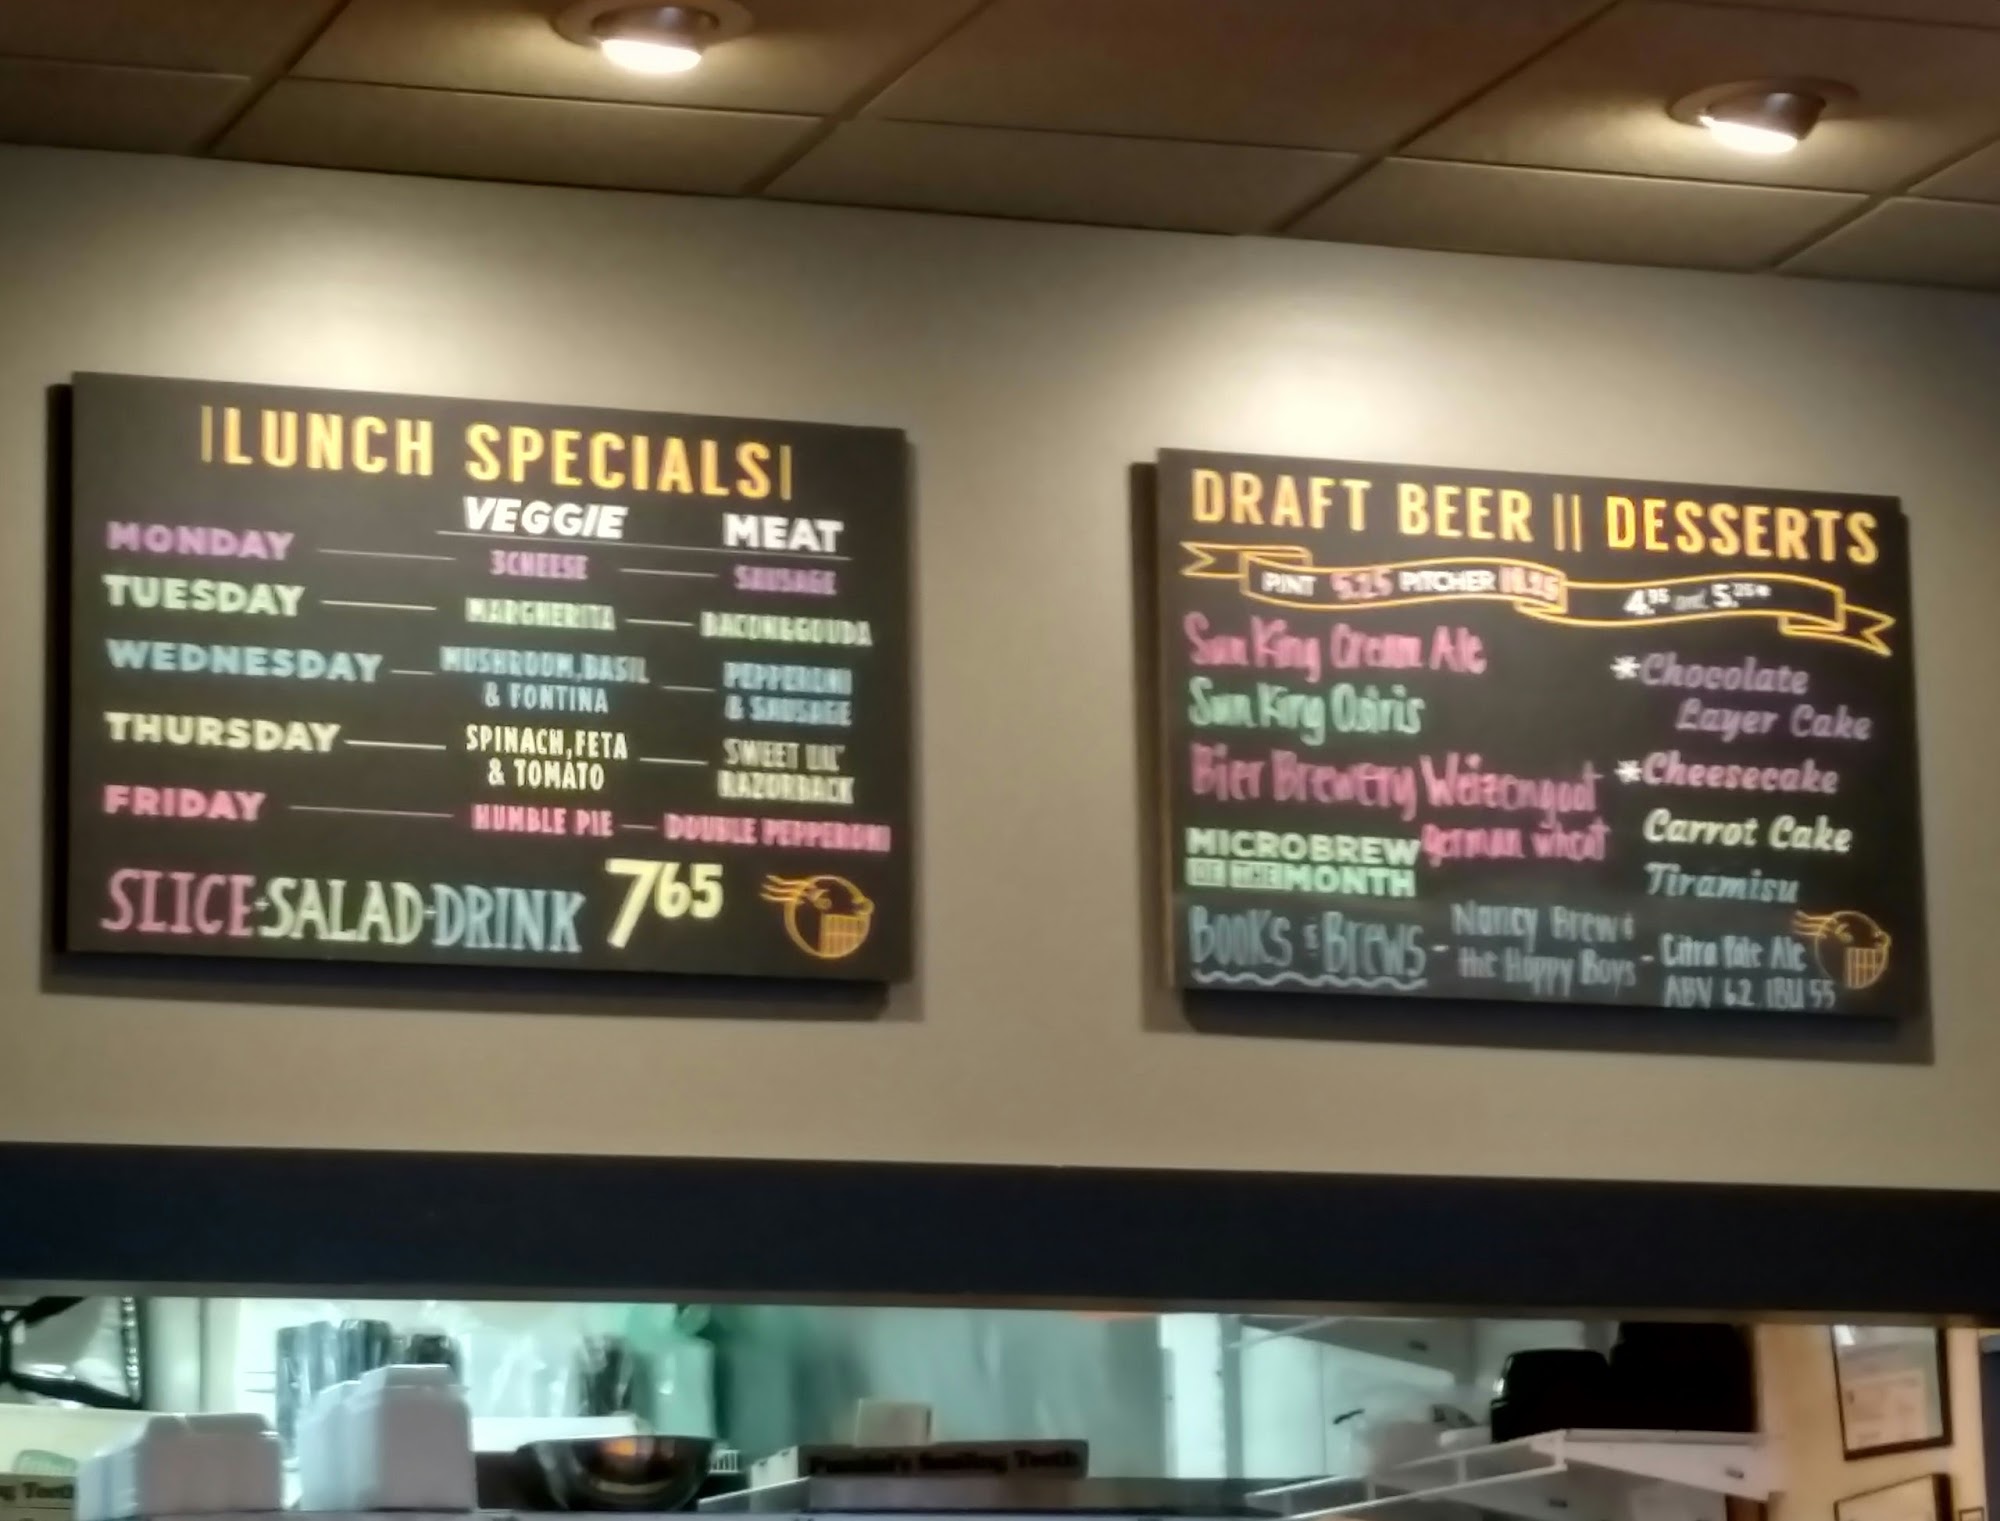 |LUNCH SPECIALS|
VEGGIE MEAT
MONDAY 3CHEESE SAUSAGE
TUESDAY MARGHERITA BACON&GOUDA
WEDNESDAY MUSHROOM, BASIL & FONTINA PEPPERONI & SAUSAGE
THURSDAY SPINACH, FETA & TOMATO SWEET LIL' RAZORBACK
FRIDAY HUMBLE PIE DOUBLE PEPPERONI
SLICE+SALAD+DRINK 7 65
DRAFT BEER || DESSERTS
PINT 5.25 PITCHER 4.95 and 5.25*
Sun King Cream Ale
Sun King Osiris
Bier Brewery Weizengoat
german wheat
MICROBREW
OF THE MONTH
BOOKS & BREWS - Nancy Brew & the Hoppy Boys - Citra Pale Ale
ABV 6.2 IBU 55
*Chocolate
Layer Cake
*Cheesecake
Carrot Cake
Tiramisu